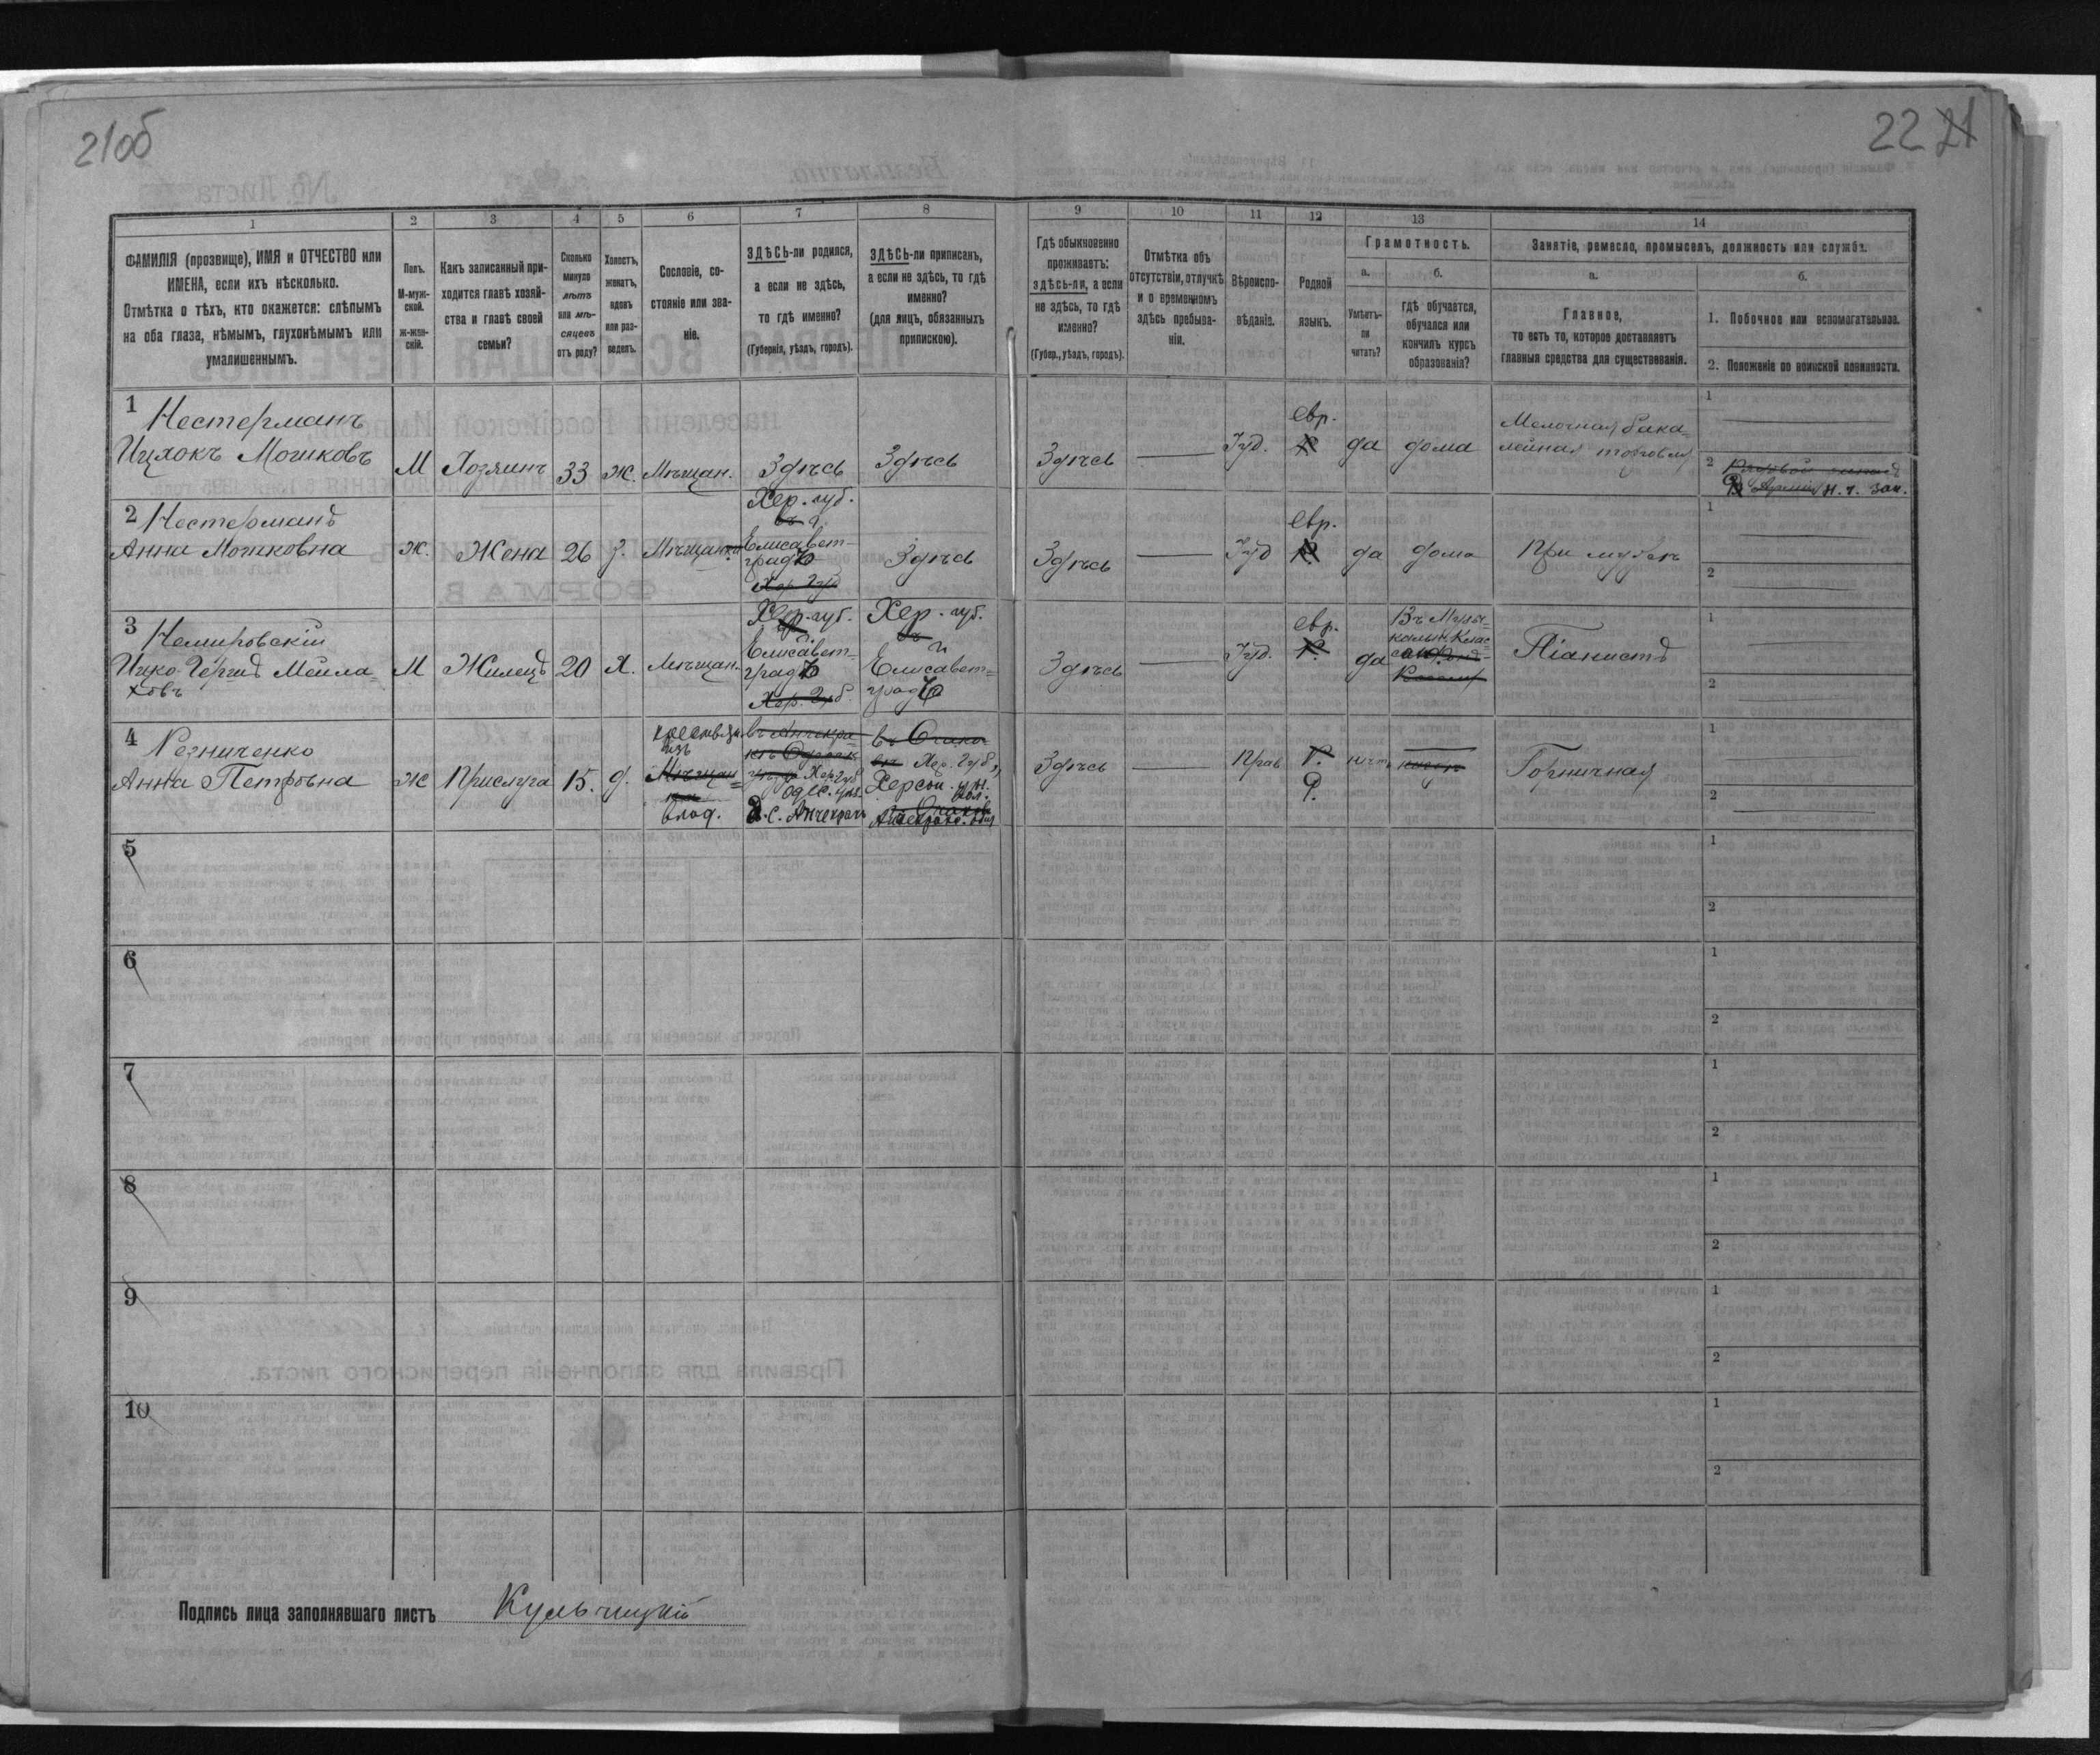 21об
22 21
1
2
3
4
5
6
7
8
9
10
11
12
13
14
ФАМИЛІЯ (прозвище), ИМЯ и ОТЧЕСТВО или
ИМЕНА, если ихъ нѣсколько.
Отмѣтка о тѣхъ, кто окажется: слѣпымъ
на оба глаза, нѣмымъ, глухонѣмымъ или
умалишеннымъ.
Полъ.
М-муж-
ской.
ж-жен-
скій.
Какъ записанный при-
ходится главѣ хозяй-
ства и главѣ своей
семьи?
Сколько
минуло
лѣтъ
или мѣ-
сяцевъ
отъ роду?
Холостъ,
женатъ,
вдовъ
или раз-
веденъ.
Сословіе, со-
стояніе или зва-
ніе.
ЗДѢСЬ-ли родился,
а если не здѣсь,
то гдѣ именно?
(Губернія, уѣздъ, городъ).
ЗДѢСЬ-ли приписанъ,
а если не здѣсь, то гдѣ
именно?
(для лицъ, обязанныхъ
припискою).
Гдѣ обыкновенно
проживаетъ:
здѣсь-ли, а если
не здѣсь, то гдѣ
именно?
(Губер., уѣздъ, городъ).
Отмѣтка объ
отсутствіи, отлучкѣ
и о временномъ
здѣсь пребыва-
ніи.
Вѣроиспо-
вѣданіе.
Родной
языкъ.
Грамотность.
а.
Умѣетъ-
ли
читать?
б.
гдѣ обучается,
обучался или
кончилъ курсъ
образованія?
Занятіе, ремесло, промыселъ, должность или служба.
а.
Главное,
то есть то, которое доставляетъ
главныя средства для существованія.
б.
1. Побочное или вспомогательное.
2. Положеніе по воинской повинности.
1
Нестерманъ
Ицхокъ Мошковъ
М
Хозяинъ
33
ж.
Мѣщан.
Здѣсь
Здѣсь
Здѣсь
Іуд.
евр.
да
дома
Мелочная бака-
лейная торговля
1
2
н. ч. зап.
2
Нестерманъ
Анна Мошковна
ж.
Жена
26
з.
Мѣщан.
Хер. губ.
Елисавет-
градъ
Хер. Губ
Здѣсь
Здѣсь
Іуд
евр.
да
дома
При мужѣ
1
2
3
Немировскій
Ицко-Гершъ Мейла-
ховъ
М
Жилецъ
20
Х.
Мѣщан.
Хер. губ.
Елисавет-
градъ
Хер. Губ.
Хер. губ.
Елисавет-
градъ
Здѣсь
Іуд.
евр.
да
Въ Музы-
кальн. Клас
Піанистъ
1
2
4
Резниченко
Анна Петровна
ж
Прислуга
15.
д.
Мѣщан
Хер. Губ
Одес. уѣз.
с. Анчекракъ
Хер. Губ.
Херсон. у.
Здѣсь
Прав
Р.
Р.
нѣтъ
Горничная
1
2
5
1
2
6
1
2
7
1
2
8
1
2
9
1
2
10
1
2
Подпись лица заполнявшаго листъ Кульчицкій